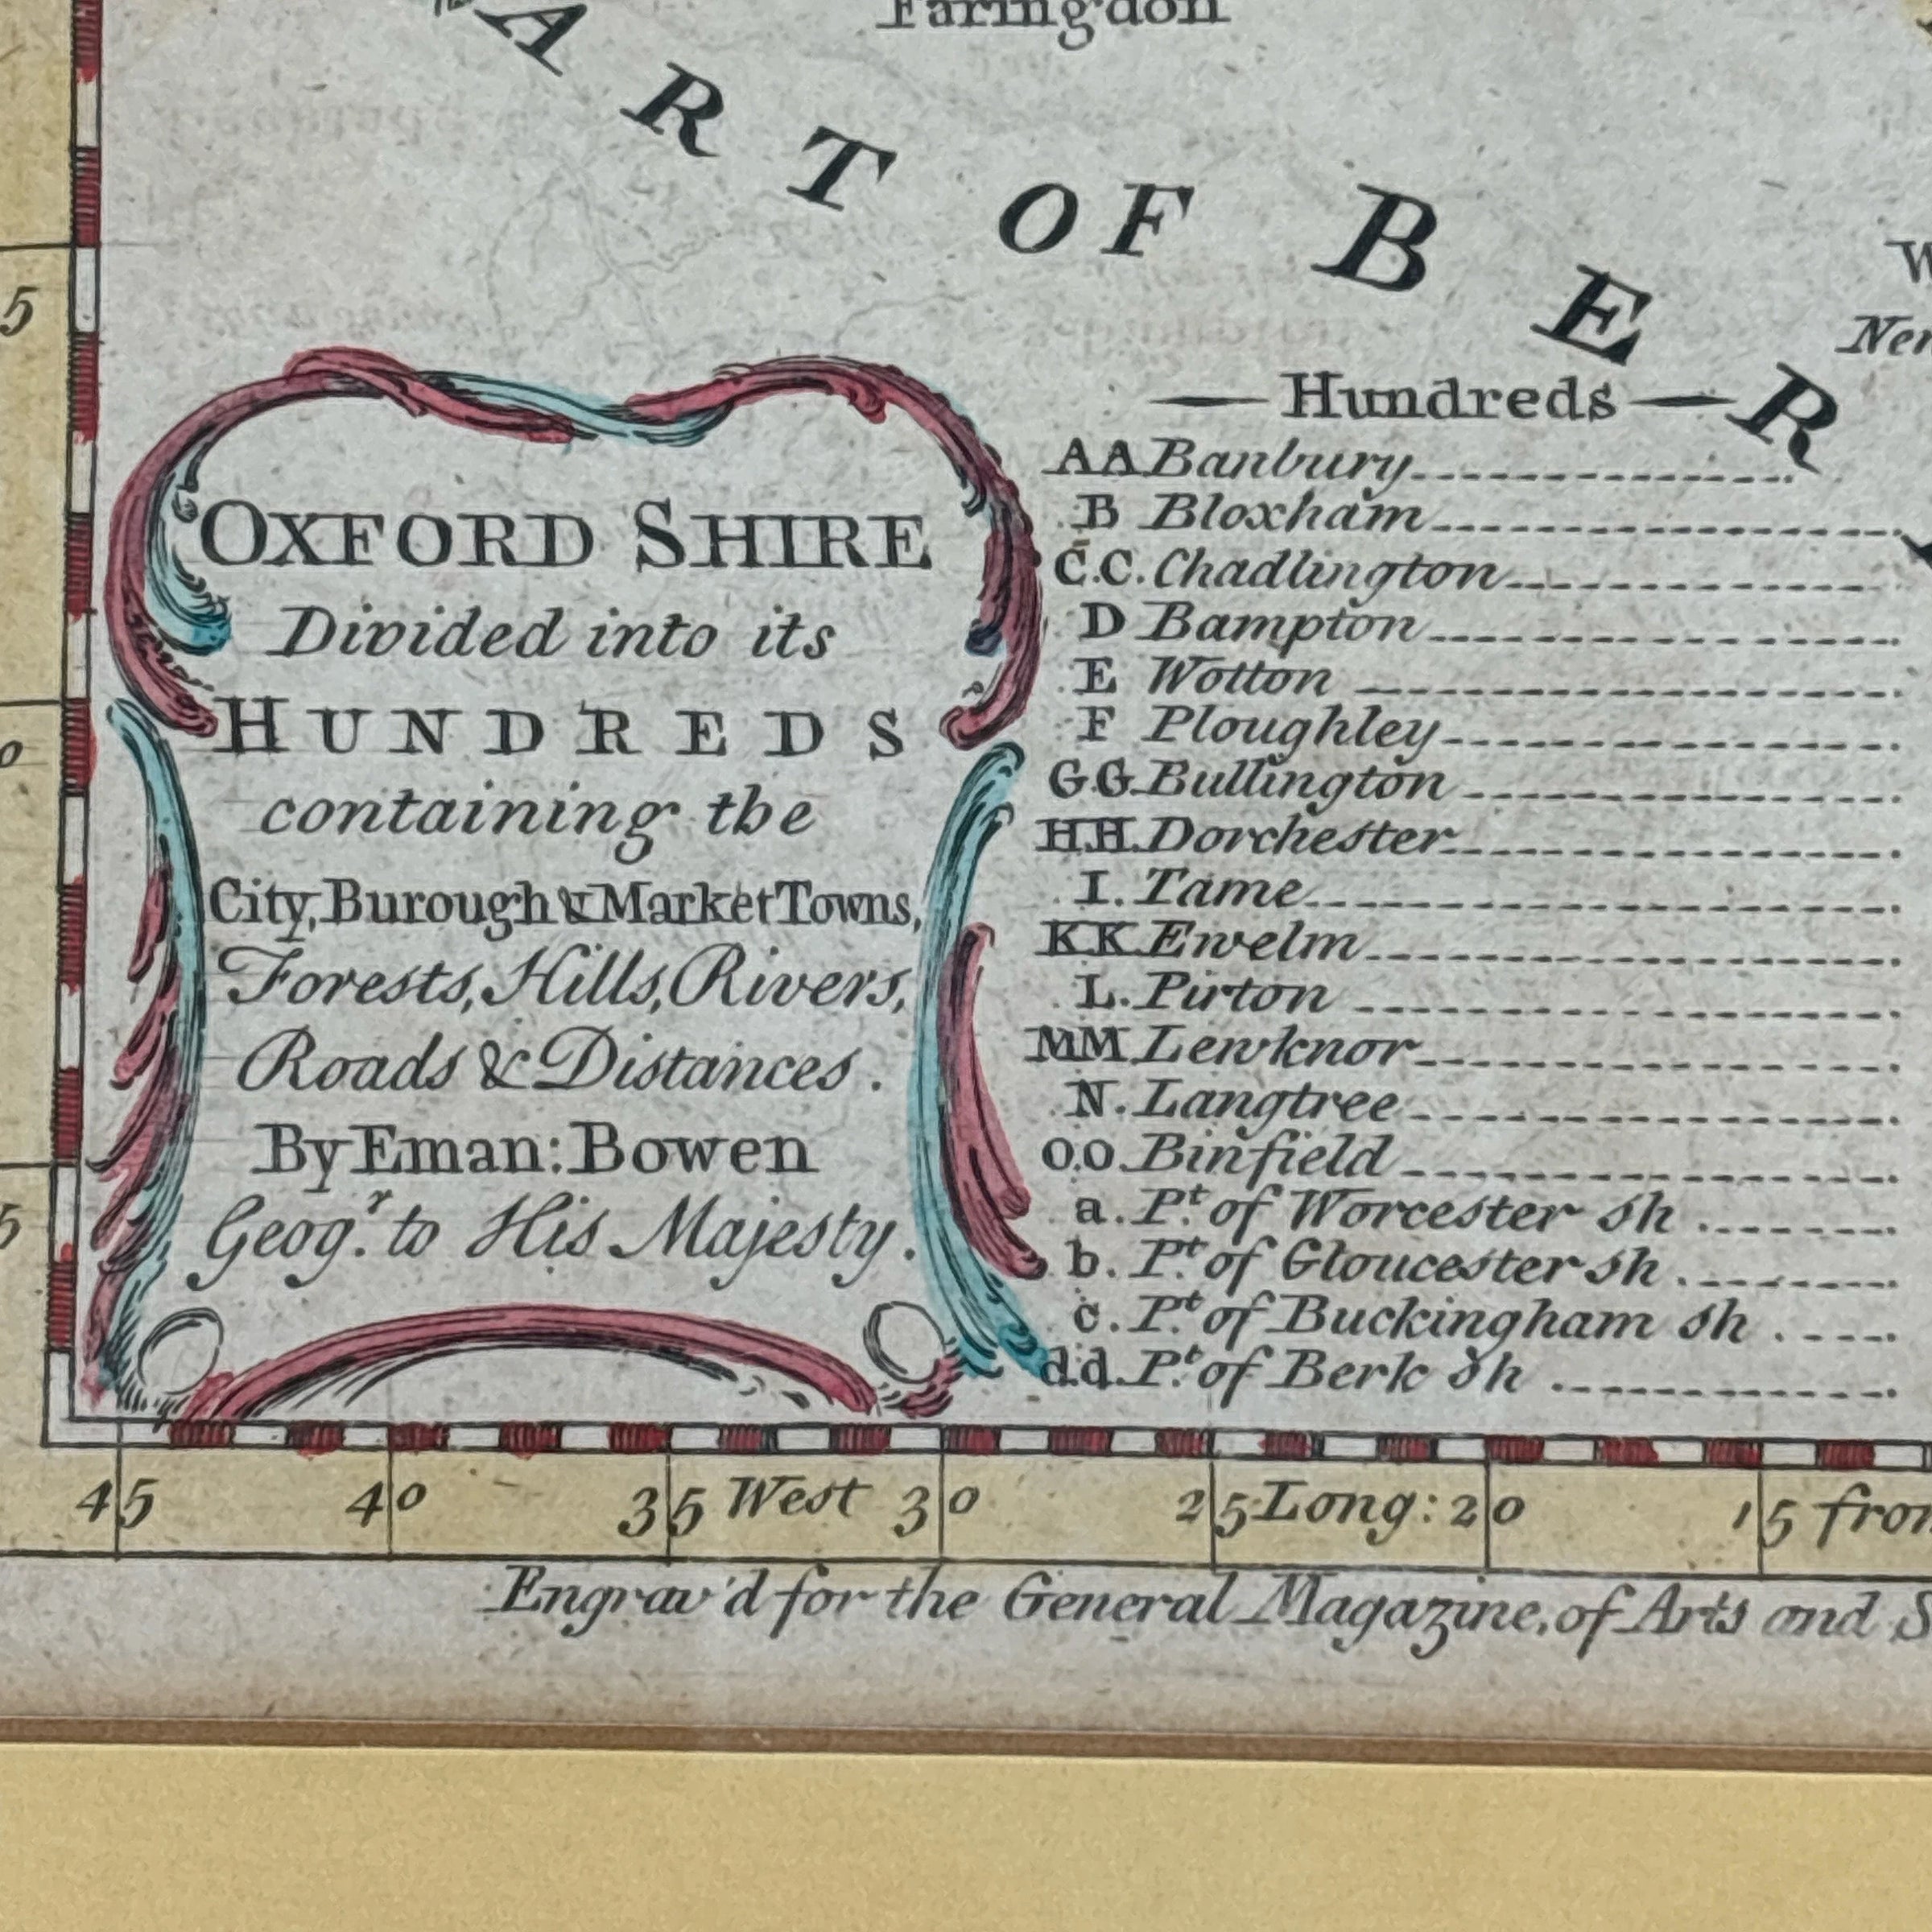 Faringdon
ART OF BER
OXFORD SHIRE
Divided into its
HUNDREDS
containing the
City, Burough & Market Towns,
Forests, Hills, Rivers,
Roads & Distances.
By Eman: Bowen
Geog.r to His Majesty.
Hundreds
AA Banbury
B Bloxham
C.C. Chadlington
D Bampton
E Wotton
F Ploughley
G.G. Bullington
H.H. Dorchester
I. Tame
K K Ewelm
L. Pirton
MM Lewknor
N. Langtree
O.O. Binfield
a. P.t of Worcester sh.
b. P.t of Gloucester sh.
c. P.t of Buckingham sh.
d.d. P.t of Berk sh
5
5
45 40 35 West 30 25 Long: 20 15
Engrav'd for the General Magazine, of Arts and